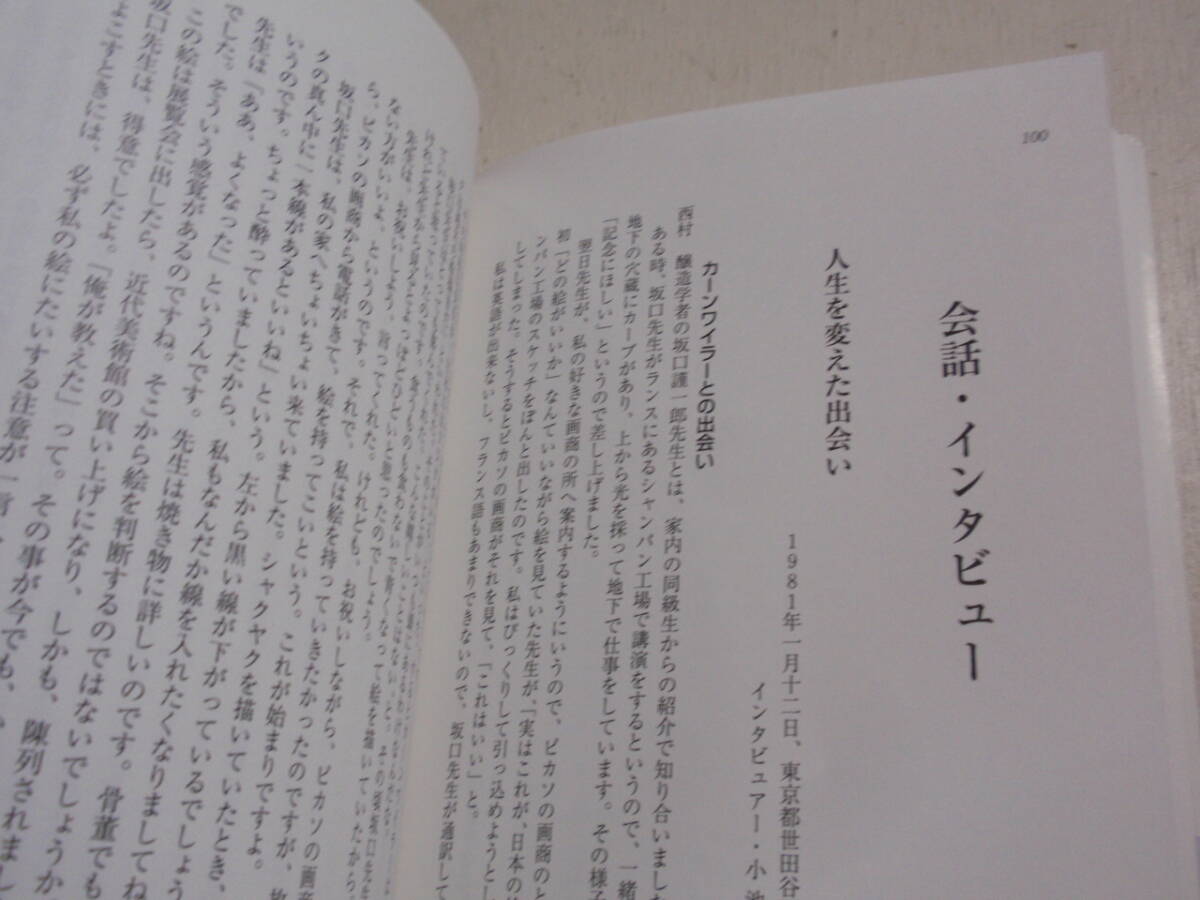 100
会話・インタビュー
人生を変えた出会い
1981年一月十二日、東京都世田谷
インタビュアー・小池
カーンワイラーとの出会い
西村　醸造学者の坂口謹一郎先生とは、家内の同級生からの紹介で知り合いました
ある時、坂口先生がランスにあるシャンパン工場で講演をするというので、一緒
地下の穴蔵にカーブがあり、上から光を採って地下で仕事をしています。その様子
「記念にほしい」というので差し上げました。
翌日先生が、私の好きな画商の所へ案内するようにいうので、ピカソの画商のと
初「どの絵がいいか」なんていいながら絵を見ていた先生が、「実はこれが、日本の
ンパン工場のスケッチをぽんと出したのです。私はびっくりして引っ込めようとし
してしまった。そうするとピカソの画商がそれを見て、「これはいい」と。
私は英語が出来ないし、フランス語もあまりできないので、坂口先生が通訳して
先生は、お祝いしよう、
ない方がいいよ、というのです。それで、私は絵を持っていきたかったのですが、
ら、ピカソの画商から電話がきて、絵を持ってこいという。これが始まりですよ。
坂口先生は、私の家へちょいちょい来ていました。シャクヤクを描いていたとき、
クの真ん中に一本線があるといいね」という。左から黒い線が下がっているでしょう
いうのです。ちょっと酔っていましたから、私もなんだか線を入れたくなりましてね
先生は「ああ、よくなった」というんです。先生は焼き物に詳しいのです。骨董でも
でした。そういう感覚があるのですね。そこから絵を判断するのではないでしょうか
この絵は展覧会に出したら、近代美術館の買い上げになり、しかも、陳列されまし
坂口先生は、得意でしたよ。『俺が教えた』って。その事が今でも、
よこすときには、必ず私の絵にたいする注意が一